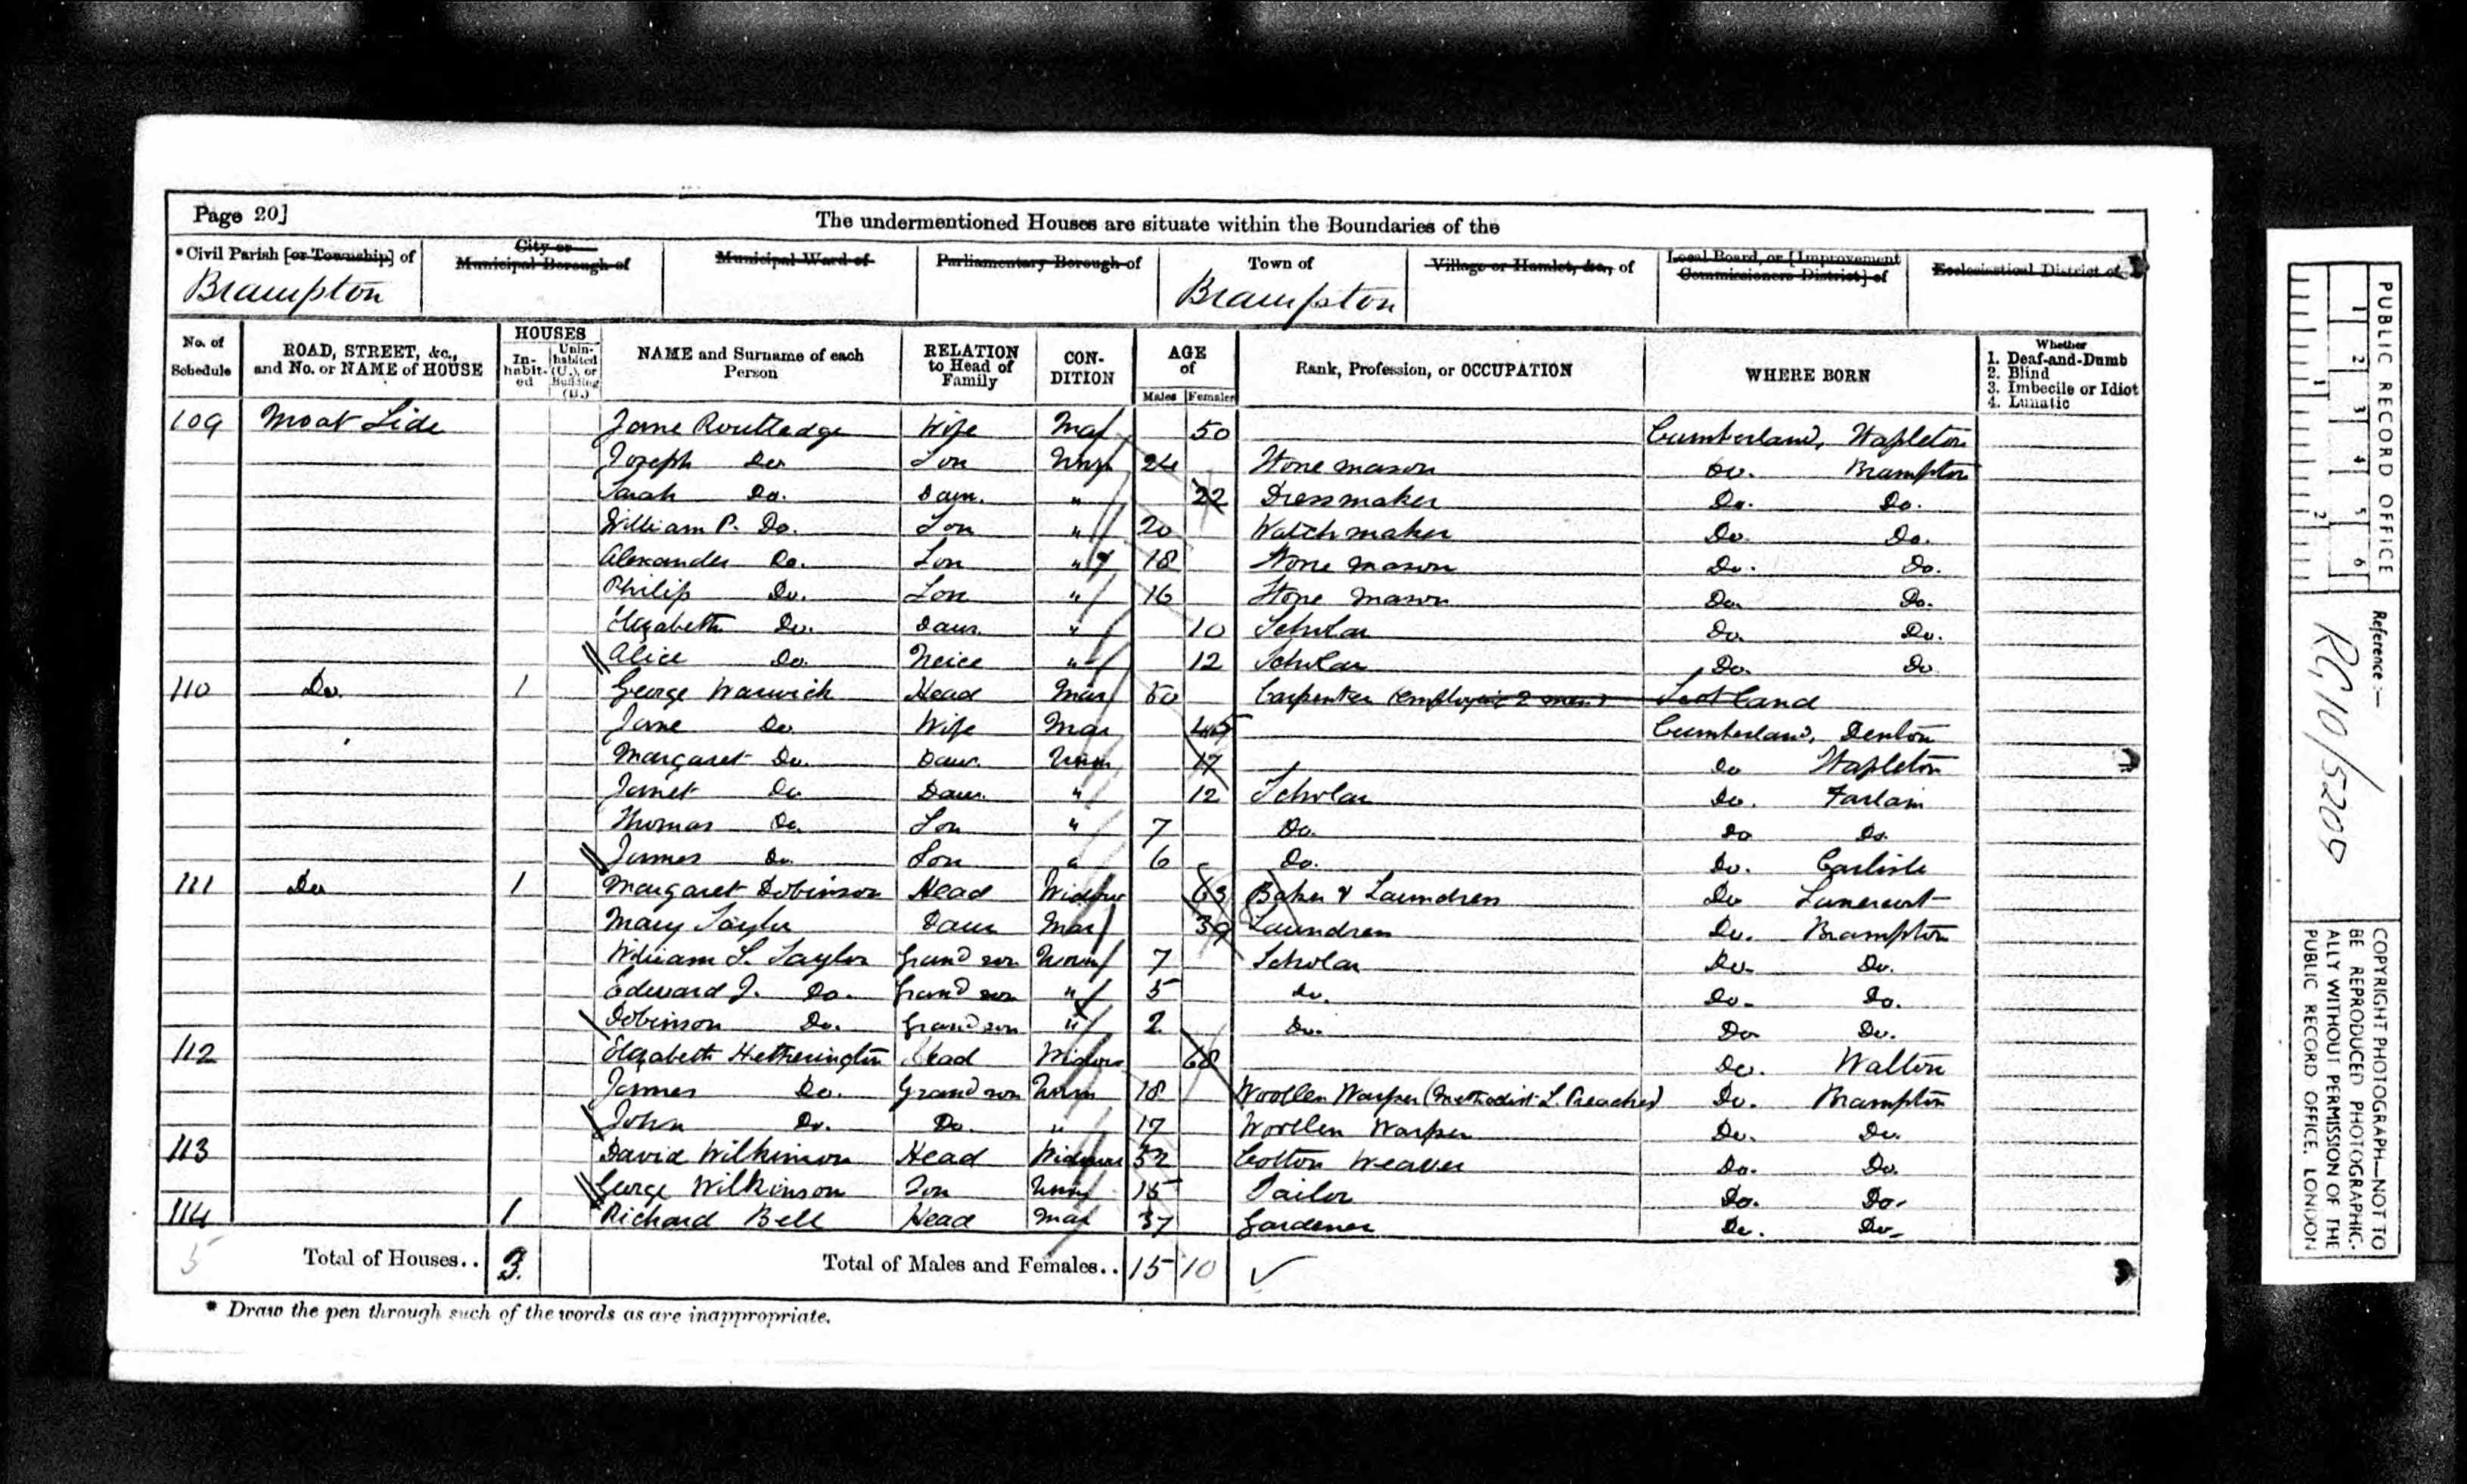 Page 20]
The undermentioned Houses are situate within the Boundaries of the
*Civil Parish [or Township] of City or Municipal Borough of Municipal Ward of Parliamentary Borough of Town of Village or Hamlet, &c., of Local Board, or [Improvement Commissioners District] of Ecclesiastical District of
Brampton Brampton
No. of Schedule ROAD, STREET, &c., and No. or NAME of HOUSE HOUSES In-habit-ed Unin-habited (U.), or Building (B.) NAME and Surname of each Person RELATION to Head of Family CON-DITION AGE of Males Females Rank, Profession, or OCCUPATION WHERE BORN Whether 1. Deaf-and-Dumb 2. Blind 3. Imbecile or Idiot 4. Lunatic
109 Moat Side Jane Routledge Wife Mar 50 Cumberland, Stapleton
Joseph Do Son Unm 24 Stone mason Do. Brampton
Sarah Do. Daur. " 22 Dressmaker Do. Do.
William P. Do. Son " 20 Watch maker Do. Do.
Alexander Do. Son " 18 Stone mason Do. Do.
Philip Do. Son " 16 Stone mason Do. Do.
Elizabeth Do. Daur. " 10 Scholar Do. Do.
Alice Do. Neice " 12 Scholar Do. Do
110 Do. 1 George Warwick Head Mar 50 Carpenter (employing 2 men) Scotland
Jane Do Wife Mar 45 Cumberland, Denton
Margaret Do. Daur. Unm 17 Do Stapleton
Janet Do Daur. " 12 Scholar Do. Farlam
Thomas Do. Son " 7 Do. Do Do.
James Do Son " 6 Do. Do. Carlisle
111 Do 1 Margaret Dobinson Head Widow 63 Baker & Laundress Do Lanercost
Mary Taylor Daur Mar 39 Laundress Do. Brampton
William S. Taylor Grand son Unm 7 Scholar Do. Do.
Edward J. Do. Grand son " 5 Do. Do. Do.
Dobinson Do. Grand son " 2 Do. Do Do.
112 Elizabeth Hetherington Head Widow 68 Do. Walton
James Do. Grand son Unm 18 Woollen Warper (Methodist L. Preacher) Do. Brampton
John Do. Do. " 17 Woollen Warper Do. Do.
113 David Wilkinson Head Widower 52 Cotton Weaver Do. Do.
George Wilkinson Son Unm 15 Tailor Do. Do.
114 1 Richard Bell Head Mar 37 Gardener Do. Do.
5 Total of Houses.. 3. Total of Males and Females.. 15 10
* Draw the pen through such of the words as are inappropriate.
PUBLIC RECORD OFFICE
1 2 3 4 5 6
1 2
Reference :—
RG 10/5209
COPYRIGHT PHOTOGRAPH—NOT TO
BE REPRODUCED PHOTOGRAPHIC-
ALLY WITHOUT PERMISSION OF THE
PUBLIC RECORD OFFICE, LONDON